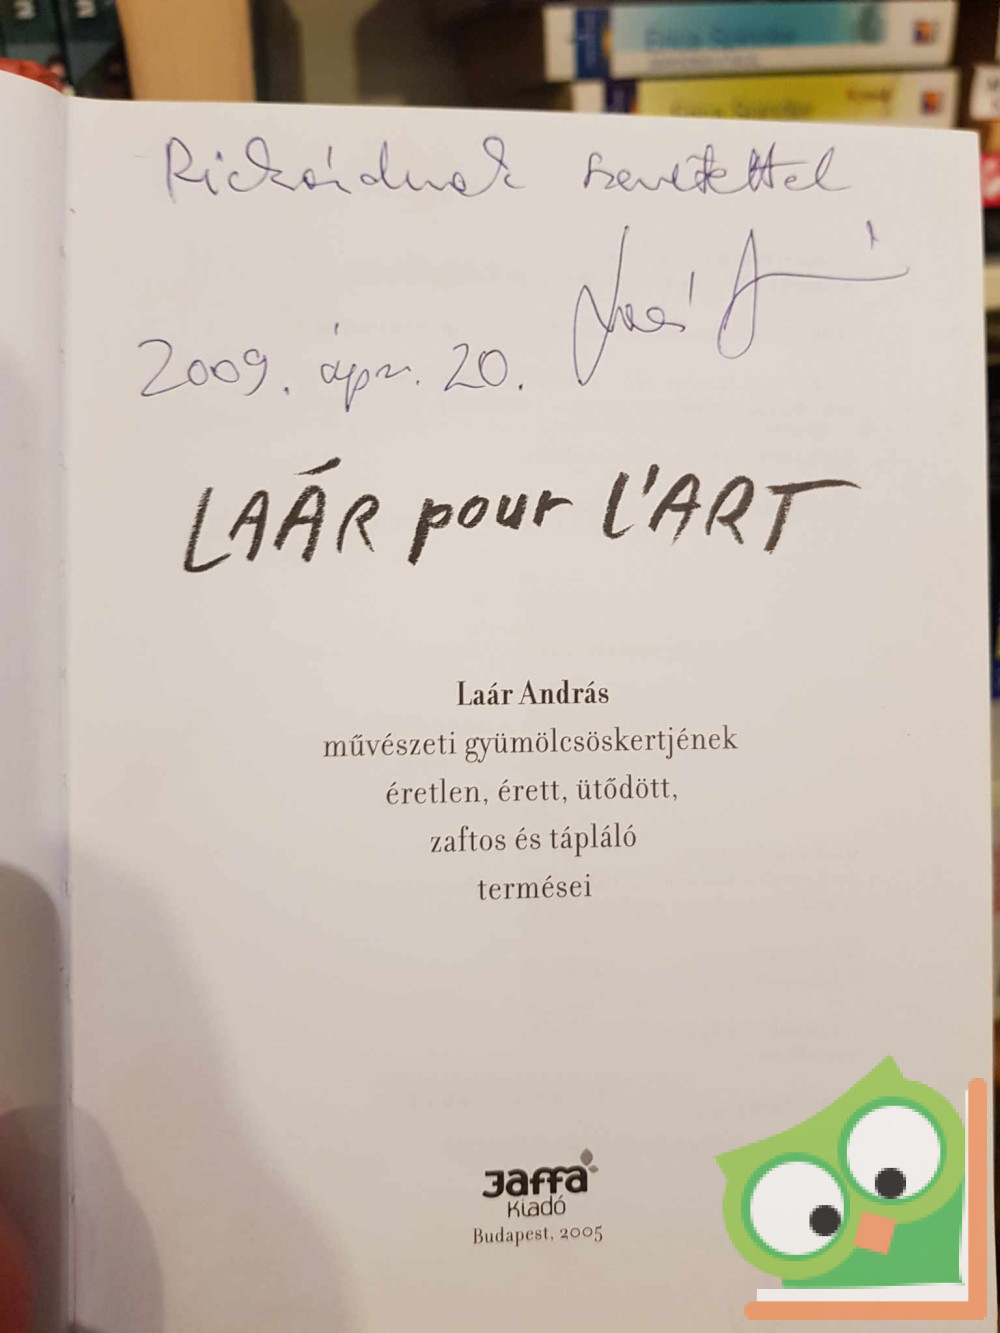 Richárdnak szeretettel
Laár A
2009. ápr. 20.
LAÁR pour L'ART
Laár András
művészeti gyümölcsöskertjének
éretlen, érett, ütődött,
zaftos és tápláló
termései
Jaffa
Kiadó
Budapest, 2005